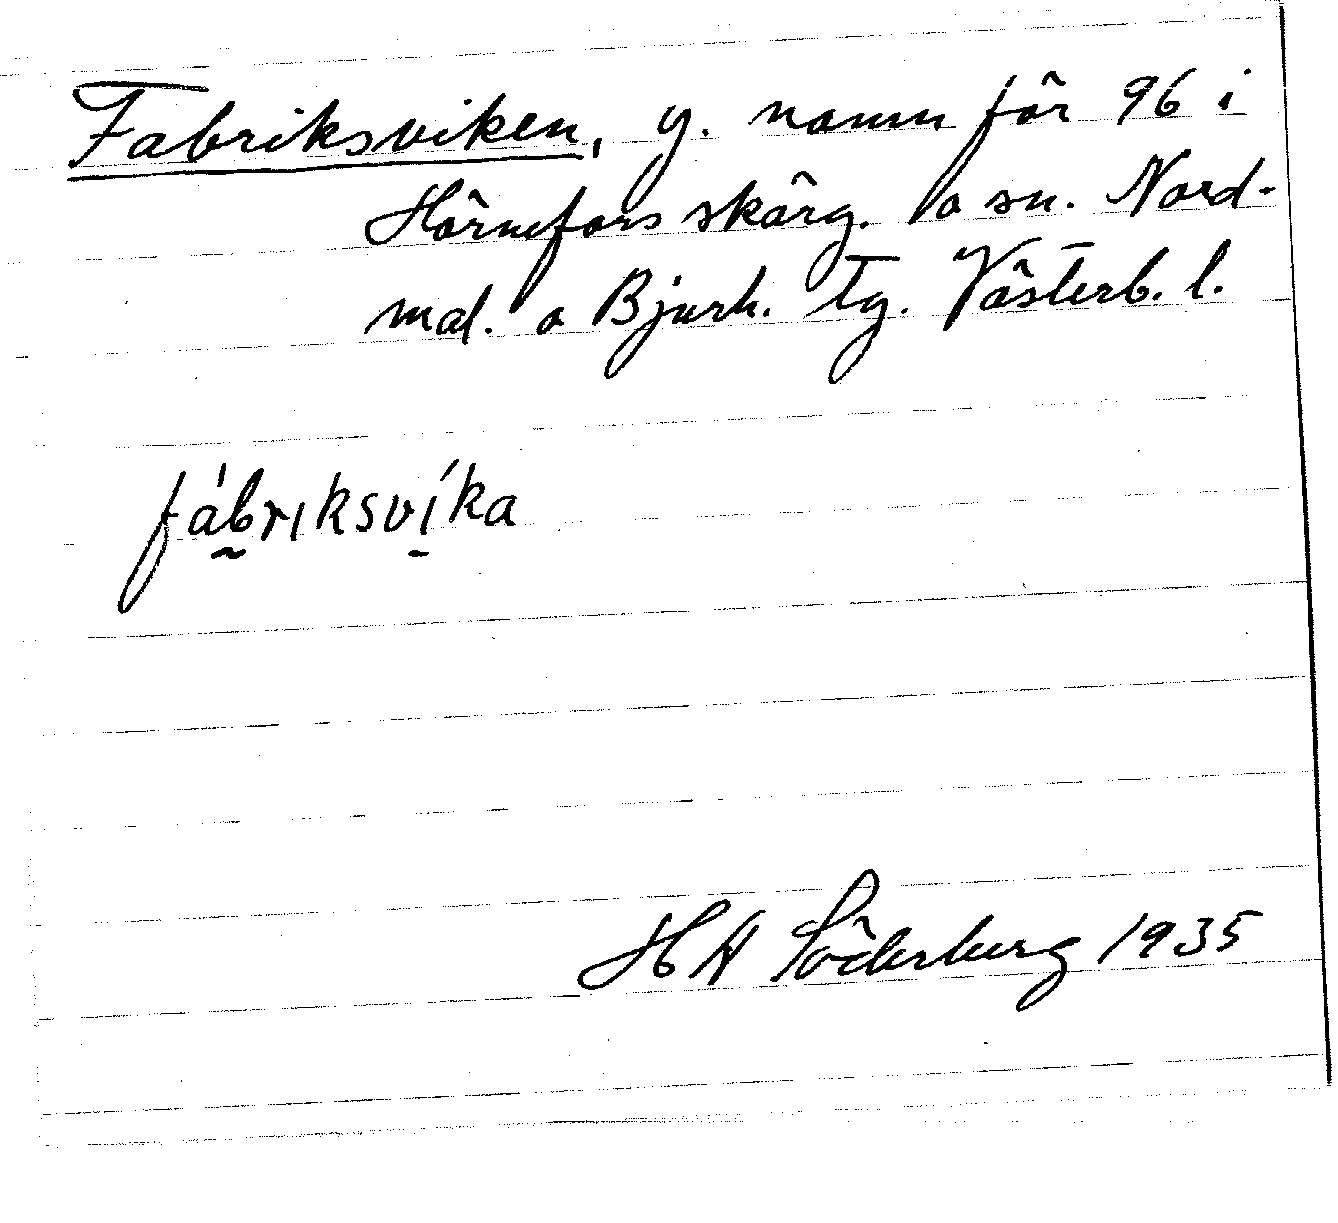 Fabriksviken, y. namn för 96 i
Hörnefors skärg. o sn. Nord-
mal. o Bjurh. tg. Västerb. l.
fábriksvíka
H A Söderberg 1935